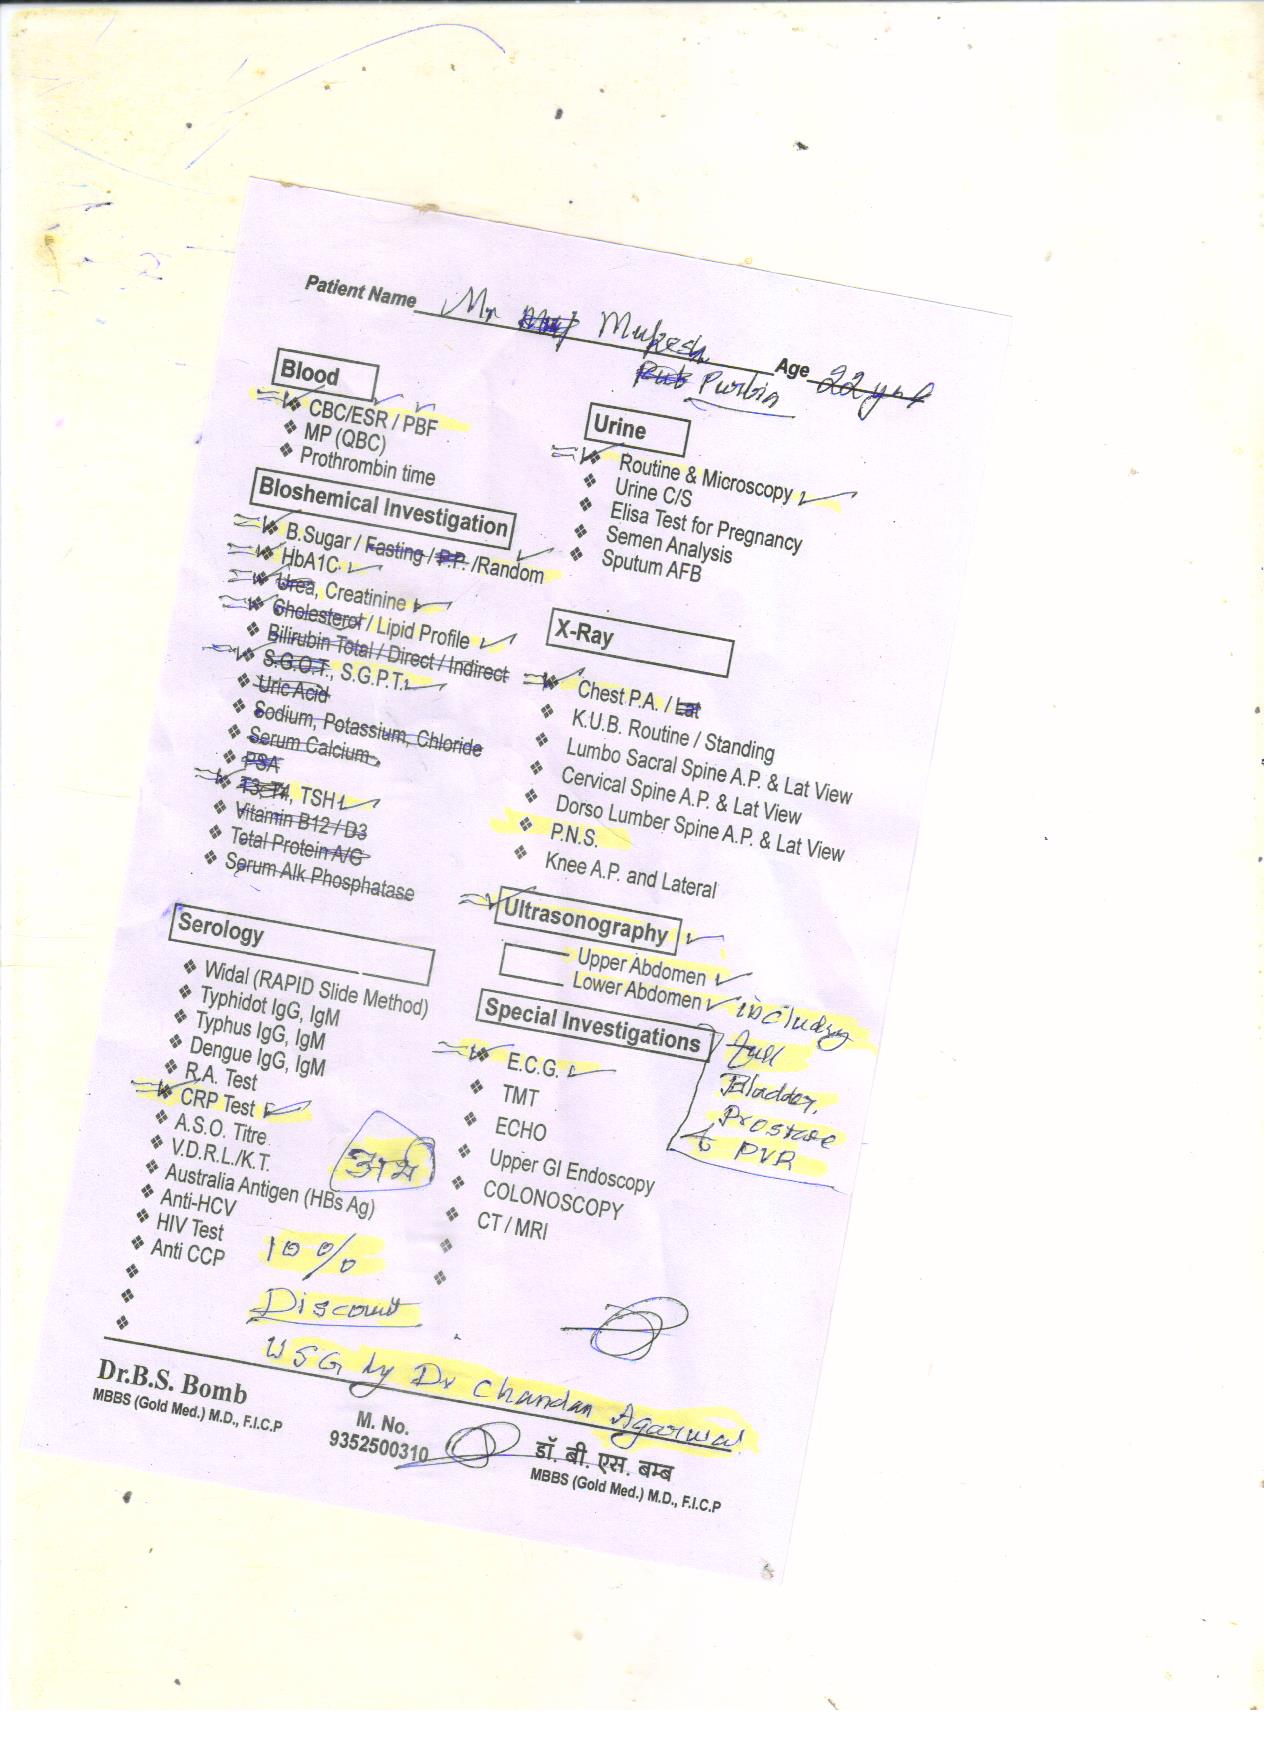 Patient Name Mr Mukesh
Purbia
Age 22 yrs
Blood
❖ CBC/ESR / PBF
❖ MP (QBC)
❖ Prothrombin time
Bloshemical Investigation
❖ B.Sugar / Fasting / P.P. /Random
❖ HbA1C
❖ Urea, Creatinine
❖ Cholesterol / Lipid Profile
❖ Bilirubin Total / Direct / Indirect
❖ S.G.O.T., S.G.P.T.
❖ Uric Acid
❖ Sodium, Potassium, Chloride
❖ Serum Calcium
❖ PSA
❖ T3, T4, TSH
❖ Vitamin B12 / D3
❖ Total Protein A/G
❖ Serum Alk Phosphatase
Serology
❖ Widal (RAPID Slide Method)
❖ Typhidot IgG, IgM
❖ Typhus IgG, IgM
❖ Dengue IgG, IgM
❖ R.A. Test
❖ CRP Test
❖ A.S.O. Titre
❖ V.D.R.L./K.T.
❖ Australia Antigen (HBs Ag)
❖ Anti-HCV
❖ HIV Test
❖ Anti CCP
Urine
❖ Routine & Microscopy
❖ Urine C/S
❖ Elisa Test for Pregnancy
❖ Semen Analysis
❖ Sputum AFB
X-Ray
❖ Chest P.A. / Lat
❖ K.U.B. Routine / Standing
❖ Lumbo Sacral Spine A.P. & Lat View
❖ Cervical Spine A.P. & Lat View
❖ Dorso Lumber Spine A.P. & Lat View
❖ P.N.S.
❖ Knee A.P. and Lateral
Ultrasonography
Upper Abdomen
Lower Abdomen including
full
Bladder,
Prostate
& PVR
Special Investigations
❖ E.C.G.
❖ TMT
❖ ECHO
❖ Upper GI Endoscopy
❖ COLONOSCOPY
❖ CT / MRI
10 %
Discount
USG by Dr Chandan Agarwal
Dr.B.S. Bomb
MBBS (Gold Med.) M.D., F.I.C.P
M. No.
9352500310
डॉ. बी. एस. बम्ब
MBBS (Gold Med.) M.D., F.I.C.P